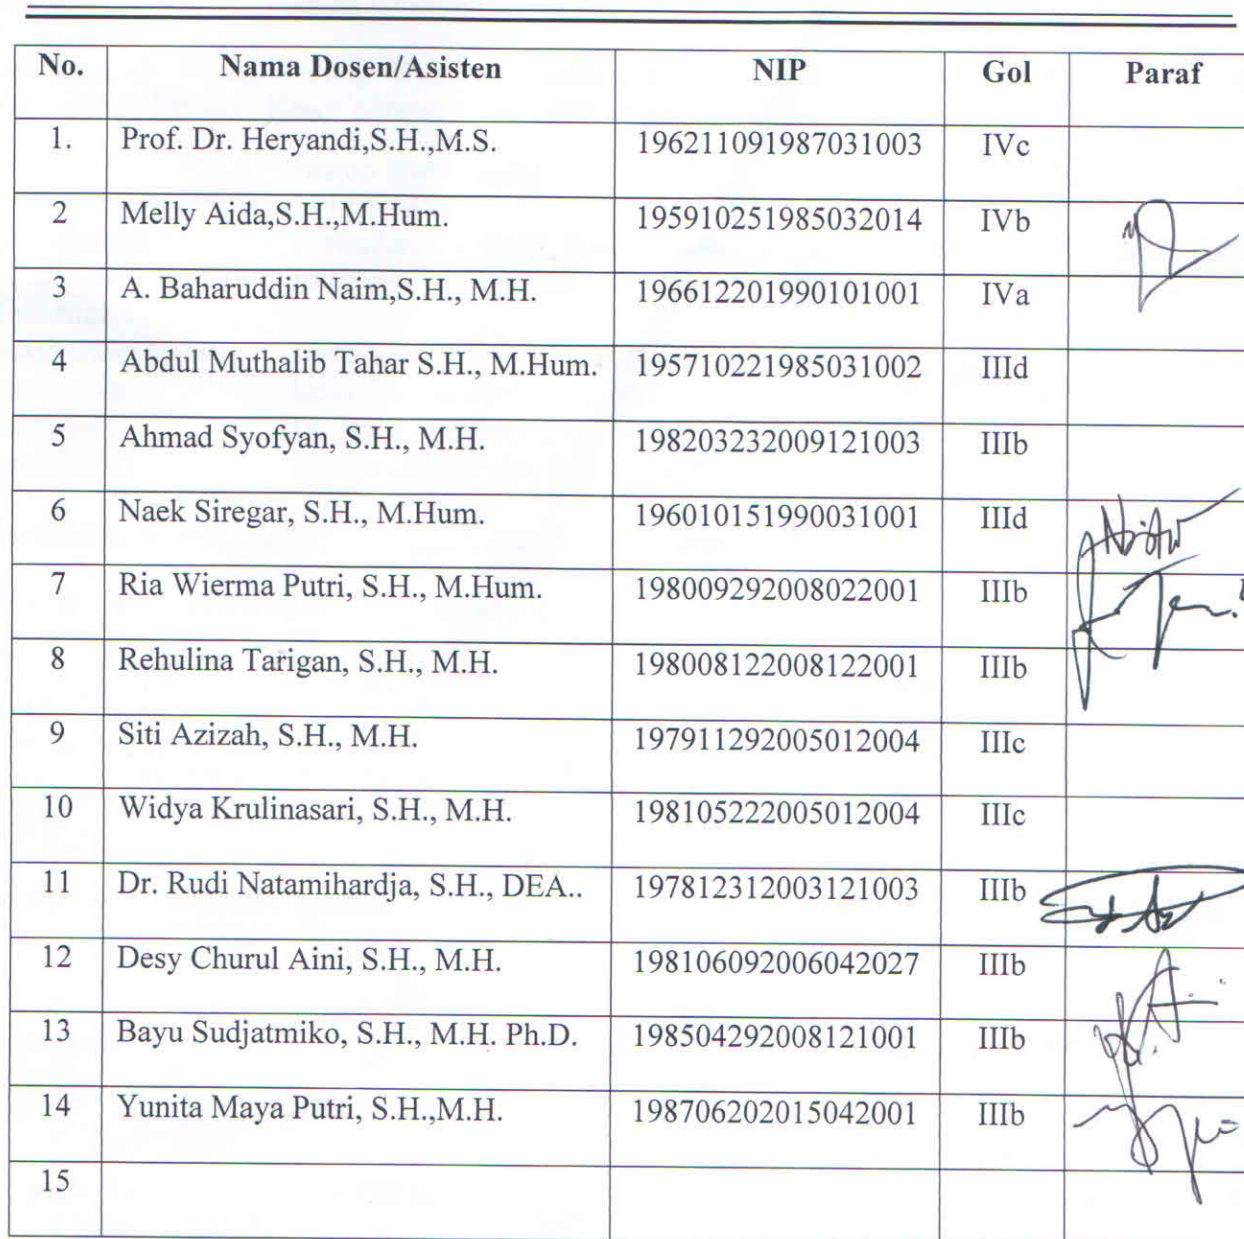 No. Nama Dosen/Asisten NIP Gol Paraf
1. Prof. Dr. Heryandi,S.H.,M.S. 196211091987031003 IVc
2 Melly Aida,S.H.,M.Hum. 195910251985032014 IVb
3 A. Baharuddin Naim,S.H., M.H. 196612201990101001 IVa
4 Abdul Muthalib Tahar S.H., M.Hum. 195710221985031002 IIId
5 Ahmad Syofyan, S.H., M.H. 198203232009121003 IIIb
6 Naek Siregar, S.H., M.Hum. 196010151990031001 IIId
7 Ria Wierma Putri, S.H., M.Hum. 198009292008022001 IIIb
8 Rehulina Tarigan, S.H., M.H. 198008122008122001 IIIb
9 Siti Azizah, S.H., M.H. 197911292005012004 IIIc
10 Widya Krulinasari, S.H., M.H. 198105222005012004 IIIc
11 Dr. Rudi Natamihardja, S.H., DEA.. 197812312003121003 IIIb
12 Desy Churul Aini, S.H., M.H. 198106092006042027 IIIb
13 Bayu Sudjatmiko, S.H., M.H. Ph.D. 198504292008121001 IIIb
14 Yunita Maya Putri, S.H.,M.H. 198706202015042001 IIIb
15